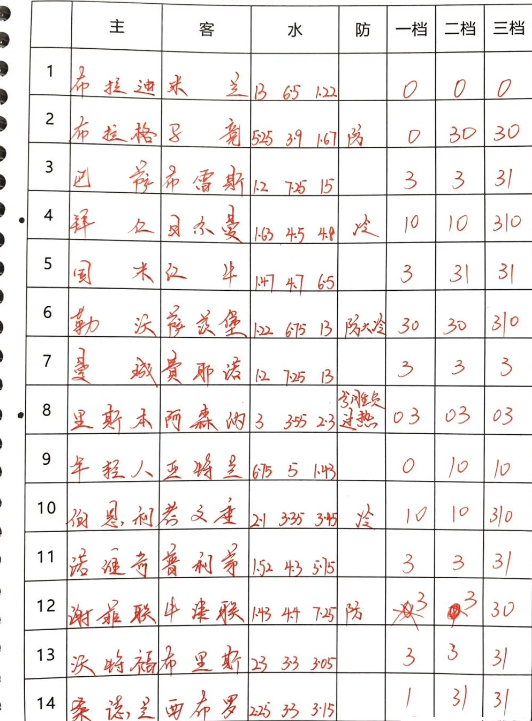 主 客 水 防 一档 二档 三档
1 布拉迪 米兰 13 6.5 1.22 0 0 0
2 布拉格 马竞 5.25 3.9 1.67 防 0 30 30
3 巴萨 布雷斯 1.2 7.25 15 3 3 31
4 拜仁 日尔曼 1.63 4.5 4.8 冷 10 10 310
5 国米 红牛 1.47 4.7 6.5 3 31 31
6 勒沃 萨茨堡 1.22 6.75 13 防大冷 30 30 310
7 曼城 费耶诺 1.2 7.25 13 3 3 3
8 里斯本 阿森纳 3 3.55 2.3 过热 03 03 03
9 年轻人 亚特兰 6.75 5 1.43 0 10 10
10 伯恩利 考文垂 2.1 3.35 3.45 冷 10 10 310
11 诺维奇 普利茅 1.52 4.3 5.75 3 3 31
12 谢菲联 牛津联 1.43 4.4 7.25 防 3 3 30
13 沃特福 布里斯 2.3 3.3 3.05 3 3 31
14 桑德兰 西布罗 2.25 3.3 3.15 1 31 31